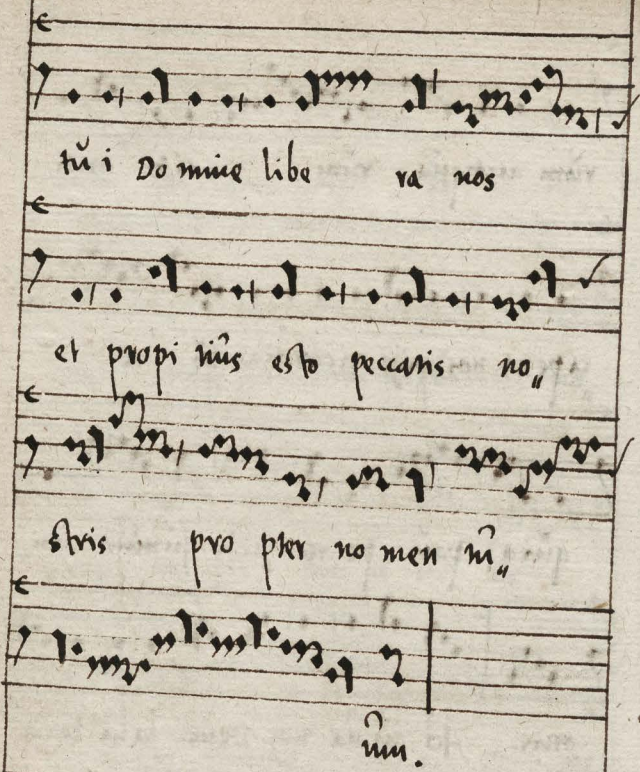 tũ i Do mine libe ra nos
et propi tiũs esto peccatis no„
stris pro pter no men tũ„
ũm.